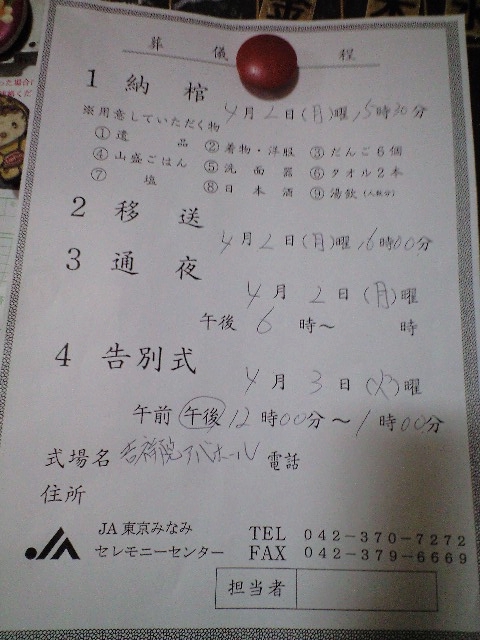 葬儀 程
1 納棺
4月2日(月)曜 15時30分
※用意していただく物
①遺品 ②着物・洋服 ③だんご6個
④山盛ごはん ⑤洗面器 ⑥タオル2本
⑦塩 ⑧日本酒 ⑨湯飲(人数分)
2 移送
4月2日(月)曜 16時00分
3 通夜
4月2日(月)曜
午後 6時〜 時
4 告別式
4月3日(火)曜
午前 午後 12時00分〜1時00分
式場名 吉祥院 ホール 電話
住所
JA東京みなみ TEL 042-370-7272
セレモニーセンター FAX 042-379-6669
担当者